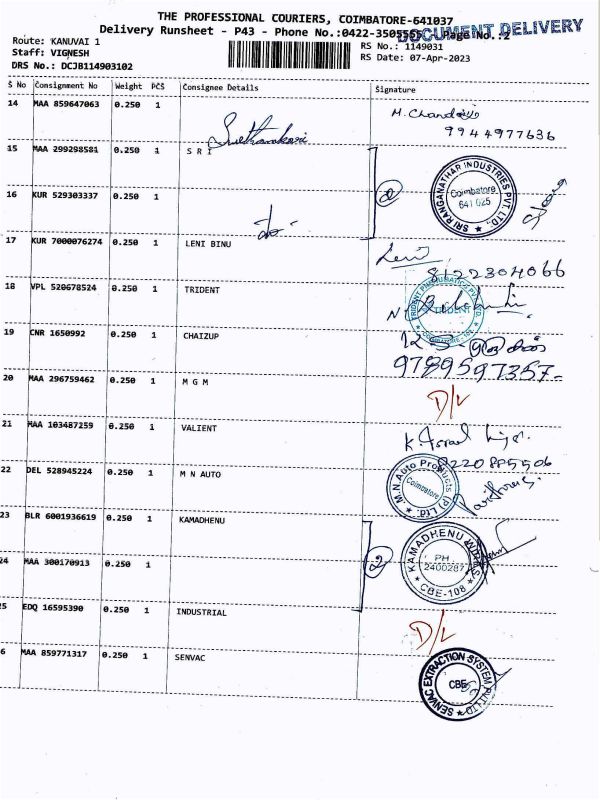 THE PROFESSIONAL COURIERS, COIMBATORE-641037
Delivery Runsheet - P43 - Phone No.:0422-3505555 - Page No.:2
DOCUMENT DELIVERY
Route: KANUVAI 1
Staff: VIGNESH
DRS No.: DCJB114903102
RS No.: 1149031
RS Date: 07-Apr-2023
S No Consignment No Weight PCS Consignee Details Signature
14 MAA 859647063 0.250 1
9944977636
15 MAA 299298581 0.250 1 S R I
SRI RANGANATHAR INDUSTRIES PVT. LTD.,
Coimbatore
641 025
16 KUR 529303337 0.250 1
17 KUR 7000076274 0.250 1 LENI BINU
Leni
8122304066
18 VPL 520678524 0.250 1 TRIDENT
TRIDENT PNEUMATICS PVT. LTD.
TRIDENT
19 CNR 1650992 0.250 1 CHAIZUP
9789597357
20 MAA 296759462 0.250 1 M G M
D/L
21 MAA 103487259 0.250 1 VALIENT
22 DEL 528945224 0.250 1 M N AUTO
M.N.Auto Products (P) Ltd.
Coimbatore
23 BLR 6001936619 0.250 1 KAMADHENU
2
KAMADHENU
PH
CBE-108
24 MAA 300170913 0.250 1
25 EDQ 16595390 0.250 1 INDUSTRIAL
D/L
6 MAA 859771317 0.250 1 SENVAC
SENVAC EXTRACTION SYSTEM PVT LTD
CBE